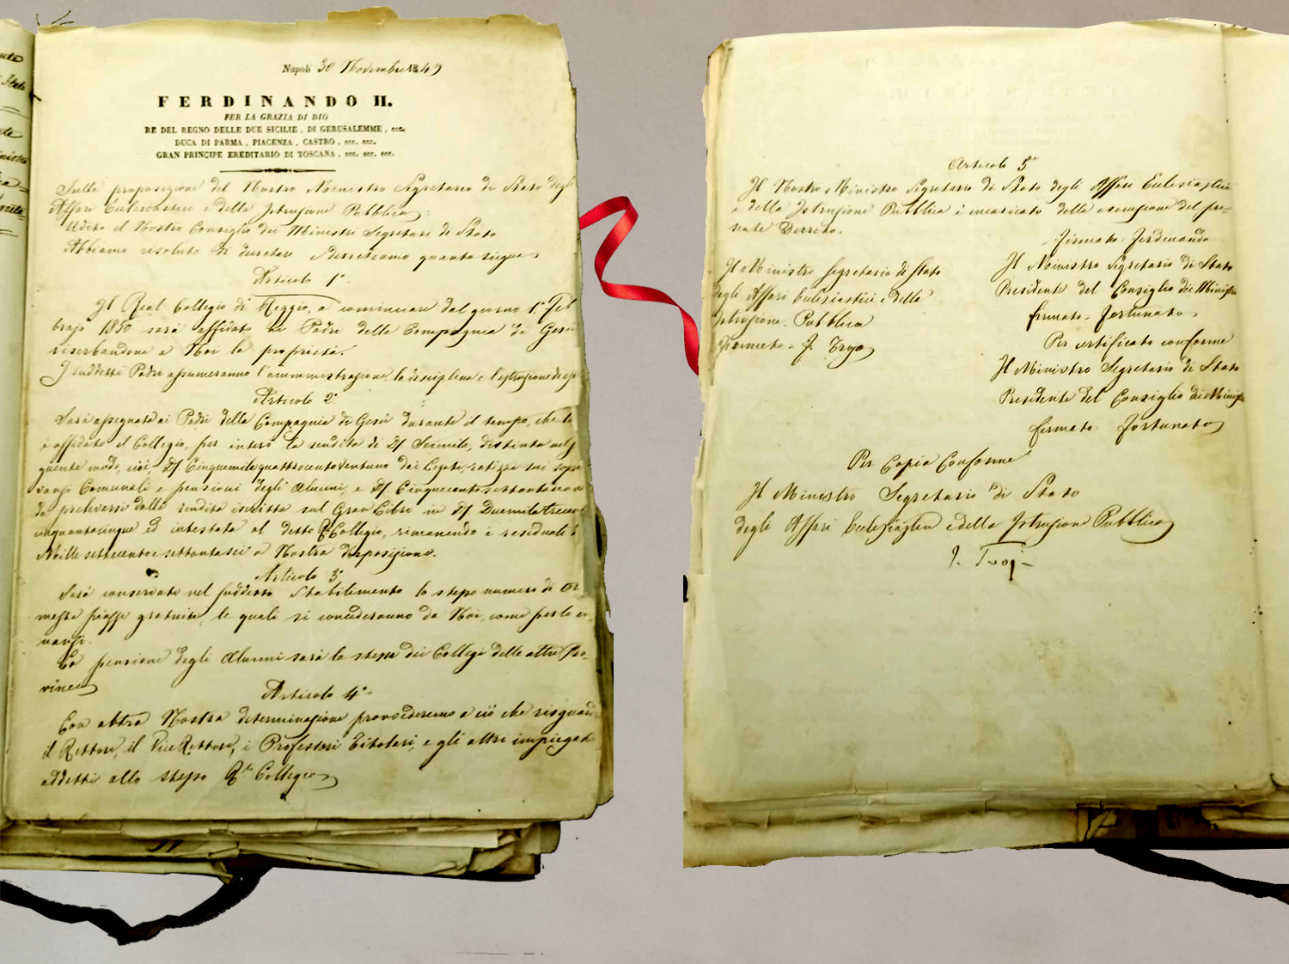 Napoli 30 Novembre 1849
FERDINANDO II.
PER LA GRAZIA DI DIO
RE DEL REGNO DELLE DUE SICILIE, DI GERUSALEMME, ecc.
DUCA DI PARMA, PIACENZA, CASTRO, ecc. ecc.
GRAN PRINCIPE EREDITARIO DI TOSCANA, ecc. ecc. ecc.
Sulla proposizione del Nostro Ministro Segretario di Stato degli
Affari Ecclesiastici e della Istruzione Pubblica;
Udito il Nostro Consiglio dei Ministri Segretari di Stato
Abbiamo risoluto di decretare e decretiamo quanto segue
Articolo 1°
Il Real Collegio di Reggio, a cominciare dal giorno 1° Feb
brajo 1850 sarà affidato ai Padri della Compagnia di Gesù
riserbandone a Noi la proprietà.
I suddetti Padri assumeranno l'amministrazione, la disciplina e l'istruzione di esso
Articolo 2°
Sarà assegnata ai Padri della Compagnia di Gesù durante il tempo, che lo
è affidato il Collegio, per intero la rendita di Seimila, distinta nel se
guente modo, cioè, Cinquemilaquattrocentoventuno dai Cespiti, ratizzi sui sopra
vanzi Comunali e pensioni degli Alunni, e Cinquecentosettantanove
da prelevarsi dalla rendita iscritta sul Gran Libro in Duemilatrecento
cinquantacinque intestata al detto R. Collegio, rimanendo i residuali
Mille settecento e settantasei a Nostra disposizione.
Articolo 3°
Sarà conservato nel suddetto Stabilimento lo stesso numero di
mezze piazze gratuite, le quali si concederanno da Noi, come per lo in
nanzi.
La pensione degli Alunni sarà la stessa dei Collegi delle altre Pro-
vincie
Articolo 4°
Con altra Nostra determinazione provvederemo a ciò che risguarda
il Rettore, il Vice Rettore, i Professori titolari, e gli altri impiegati
addetti allo stesso R.le Collegio
Articolo 5°
Il Nostro Ministro Segretario di Stato degli Affari Ecclesiastici
e della Istruzione Pubblica è incaricato della esecuzione del pre-
sente Decreto.
Firmato Ferdinando
Il Ministro Segretario di Stato
degli Affari Ecclesiastici e della
Istruzione Pubblica
Firmato F. Troja
Il Ministro Segretario di Stato
Presidente del Consiglio dei Ministri
firmato Fortunato
Per certificato conforme
Il Ministro Segretario di Stato
Presidente del Consiglio dei Ministri
firmato Fortunato
Per Copia Conforme
Il Ministro Segretario di Stato
degli Affari Ecclesiastici e della Istruzione Pubblica
F. Troja